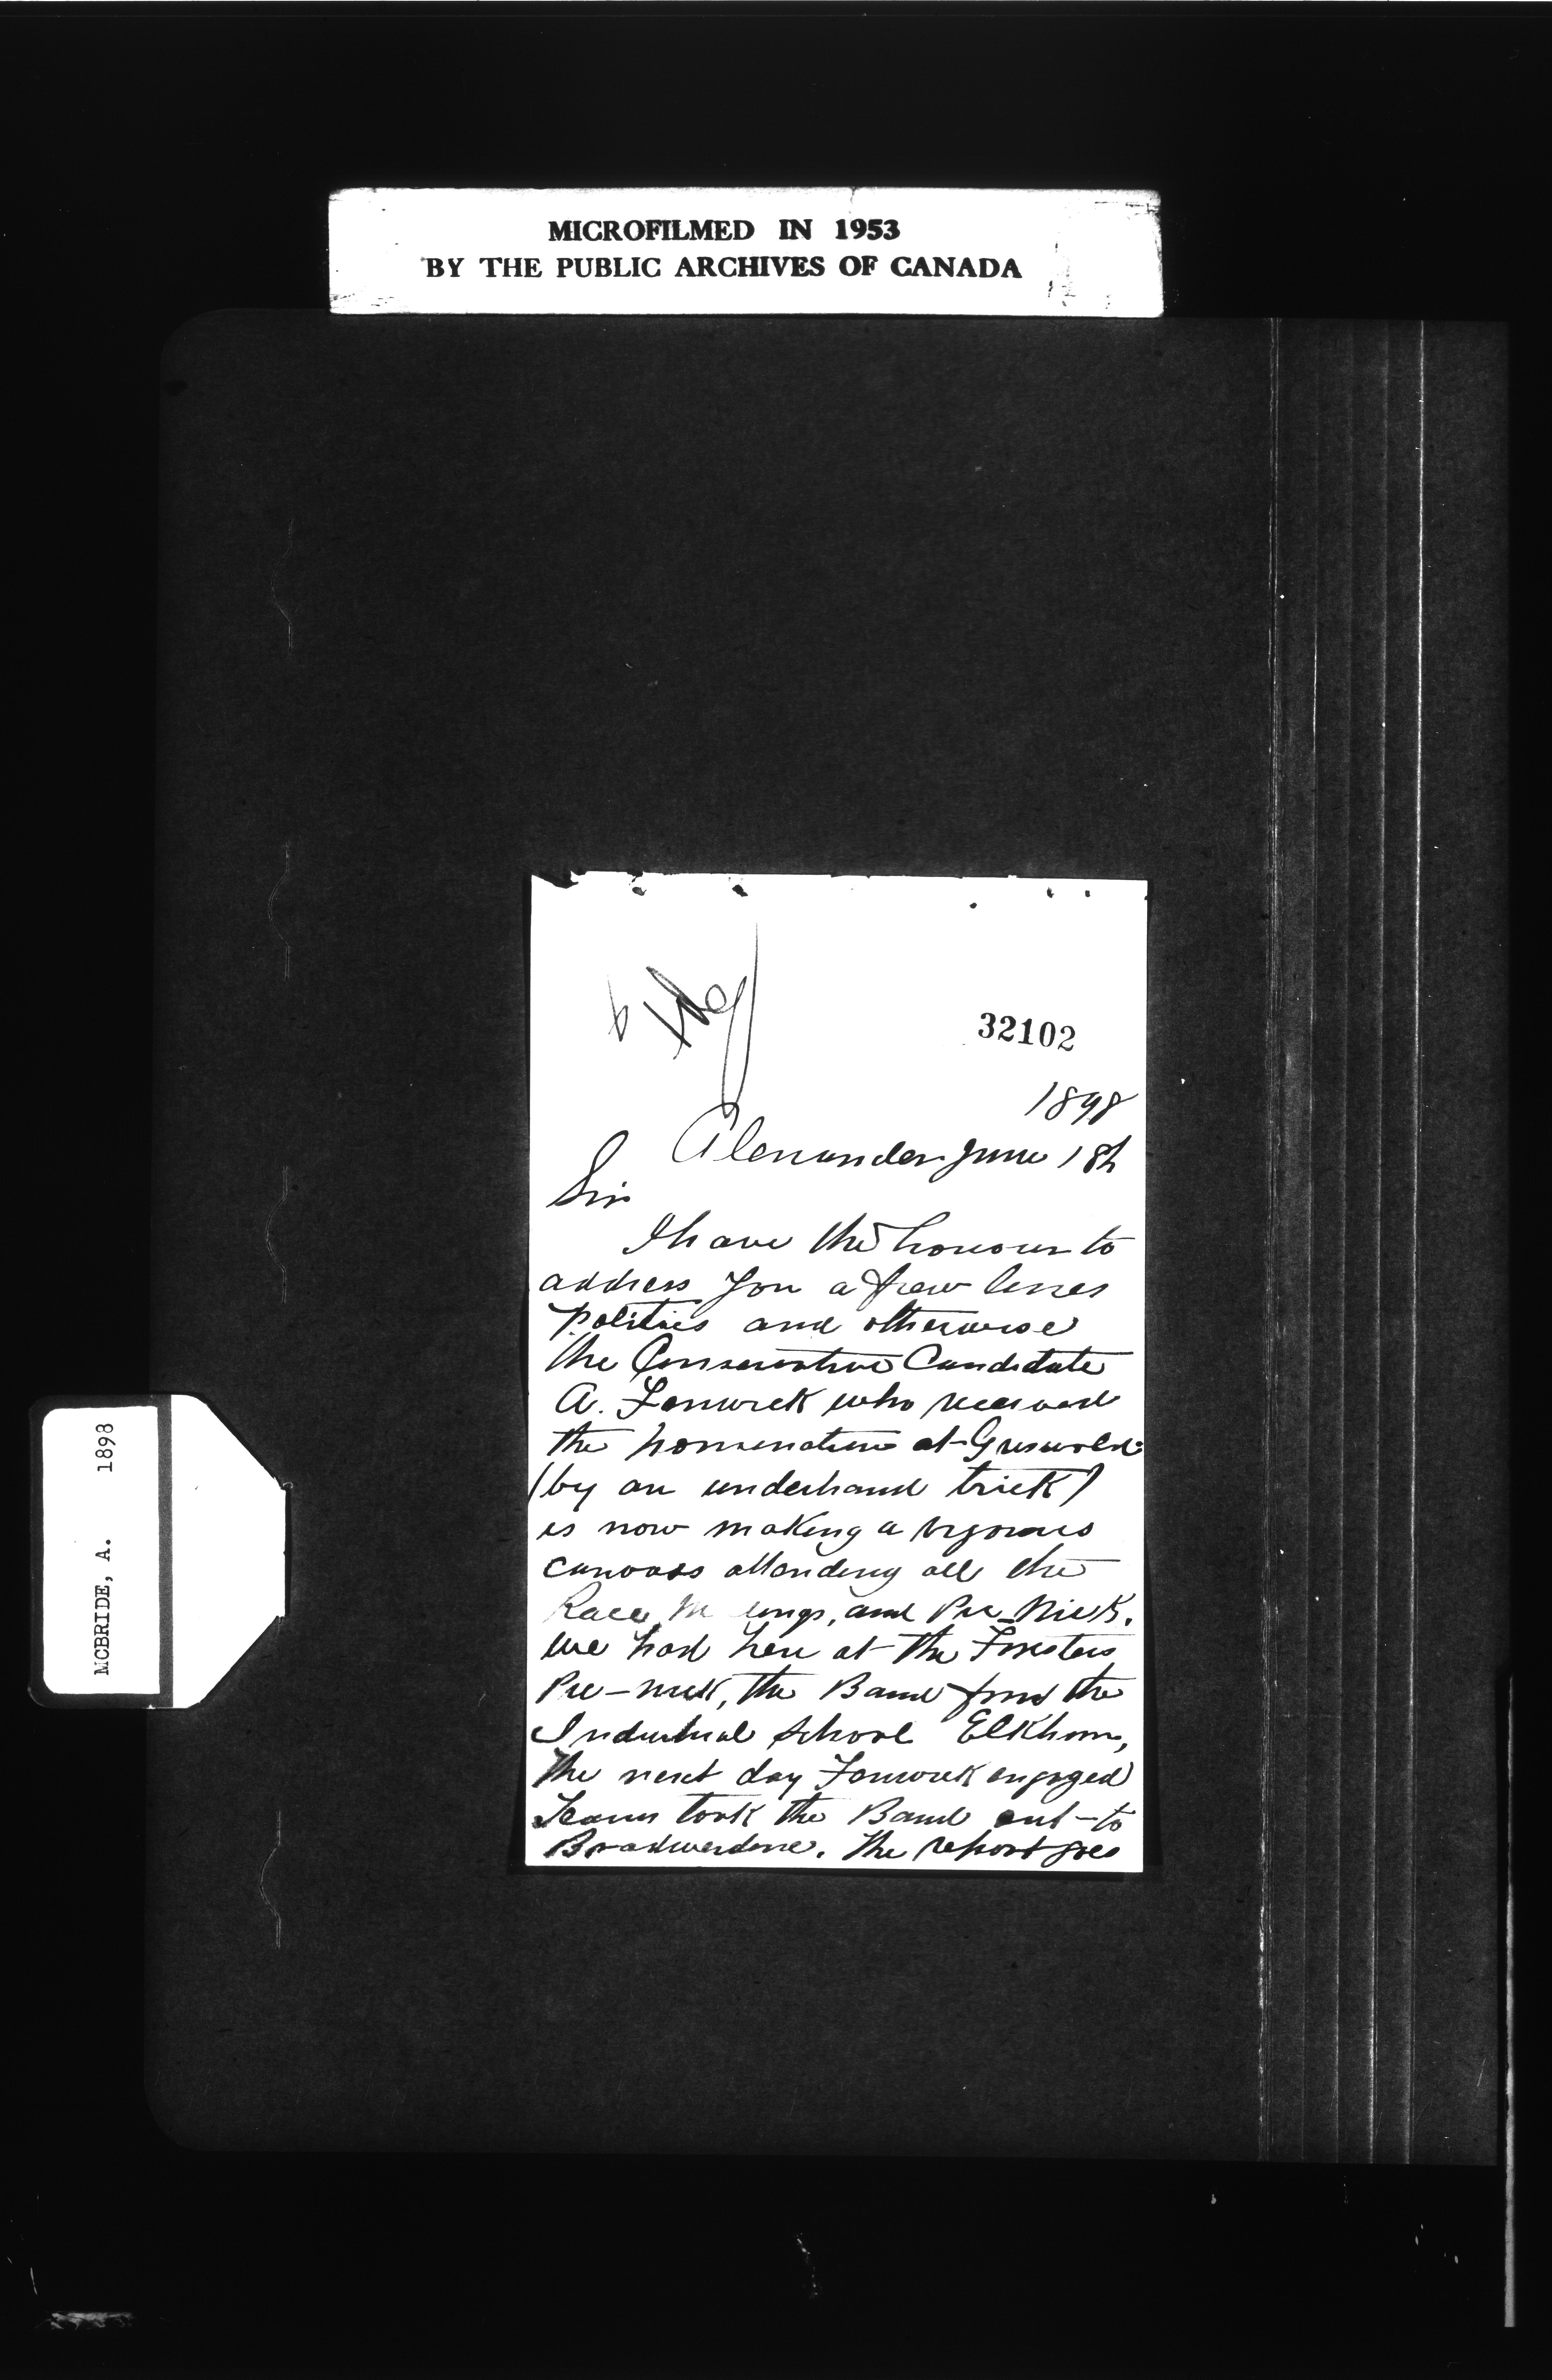 MICROFILMED IN 1953
BY THE PUBLIC ARCHIVES OF CANADA
MCBRIDE, A. 1898
32102
1898
Alexander June 18th
Sir
I have the honour to
address you a few lines
politics and otherwise
the Conservative Candidate
A. Fenwick who received
the nomination at Griswold
(by an underhand trick)
is now making a vigorous
canvass attending all the
Race M ings, and Pic-Nick.
we had here at the Foresters
Pic-nick, the Band from the
Industrial School Elkhorn,
the next day Fenwick engaged
Teams took the Band out to
Bradwardine. the report goes